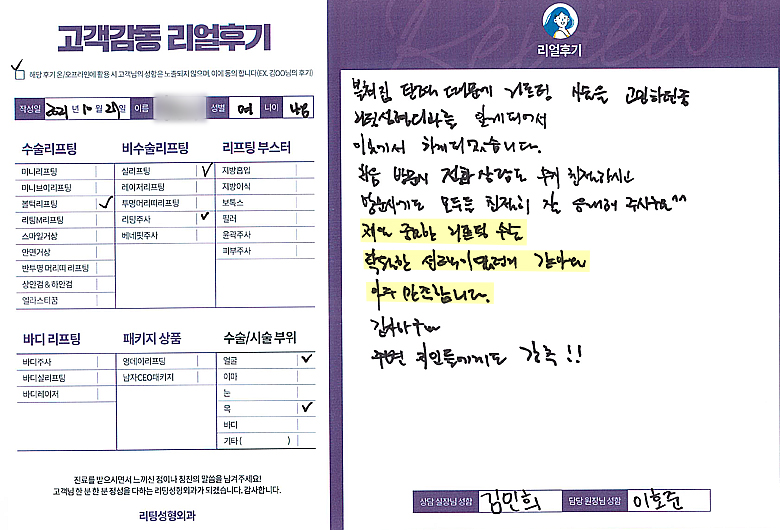 고객감동 리얼후기
해당 후기 온/오프라인에 활용 시 고객님의 성함은 노출되지 않으며, 이에 동의 합니다(EX. 김OO님의 후기)
작성일 2021 년 10 월 29일 이름 성별 여 나이
수술리프팅 비수술리프팅 리프팅 부스터
미니리프팅 실리프팅 지방흡입
미니브이리프팅 레이저리프팅 지방이식
봄턱리프팅 투명머리띠리프팅 보톡스
리팅M리프팅 리팅주사 필러
스마일거상 베네핏주사 윤곽주사
안면거상 피부주사
반투명 머리띠 리프팅
상안검 & 하안검
엘라스티꿈
바디 리프팅 패키지 상품 수술/시술 부위
바디주사 영데이리프팅 얼굴
바디실리프팅 남자CEO패키지 이마
바디레이저 눈
목
바디
기타 ( )
진료를 받으시면서 느끼신 점이나 칭찬의 말씀을 남겨주세요!
고객님 한 분 한 분 정성을 다하는 리팅성형외과가 되겠습니다. 감사합니다.
리팅성형외과
Review
리얼후기
볼처짐 턱라인 때문에 리프팅 시술을 고민하던중
리팅성형외과를 알게되어서
이곳에서 하게되었습니다.
처음 방문시 전화상담도 무척 친절하시고
방문시에도 모두들 친절히 잘 응대해 주시구요^^
제일 중요한 리프팅 수술
탁월한 선택이였던거 같아요
아주 만족합니다.
감사하구요
주변 지인들에게도 강추!!
상담 실장님 성함 김민희 담당 원장님 성함 이호준